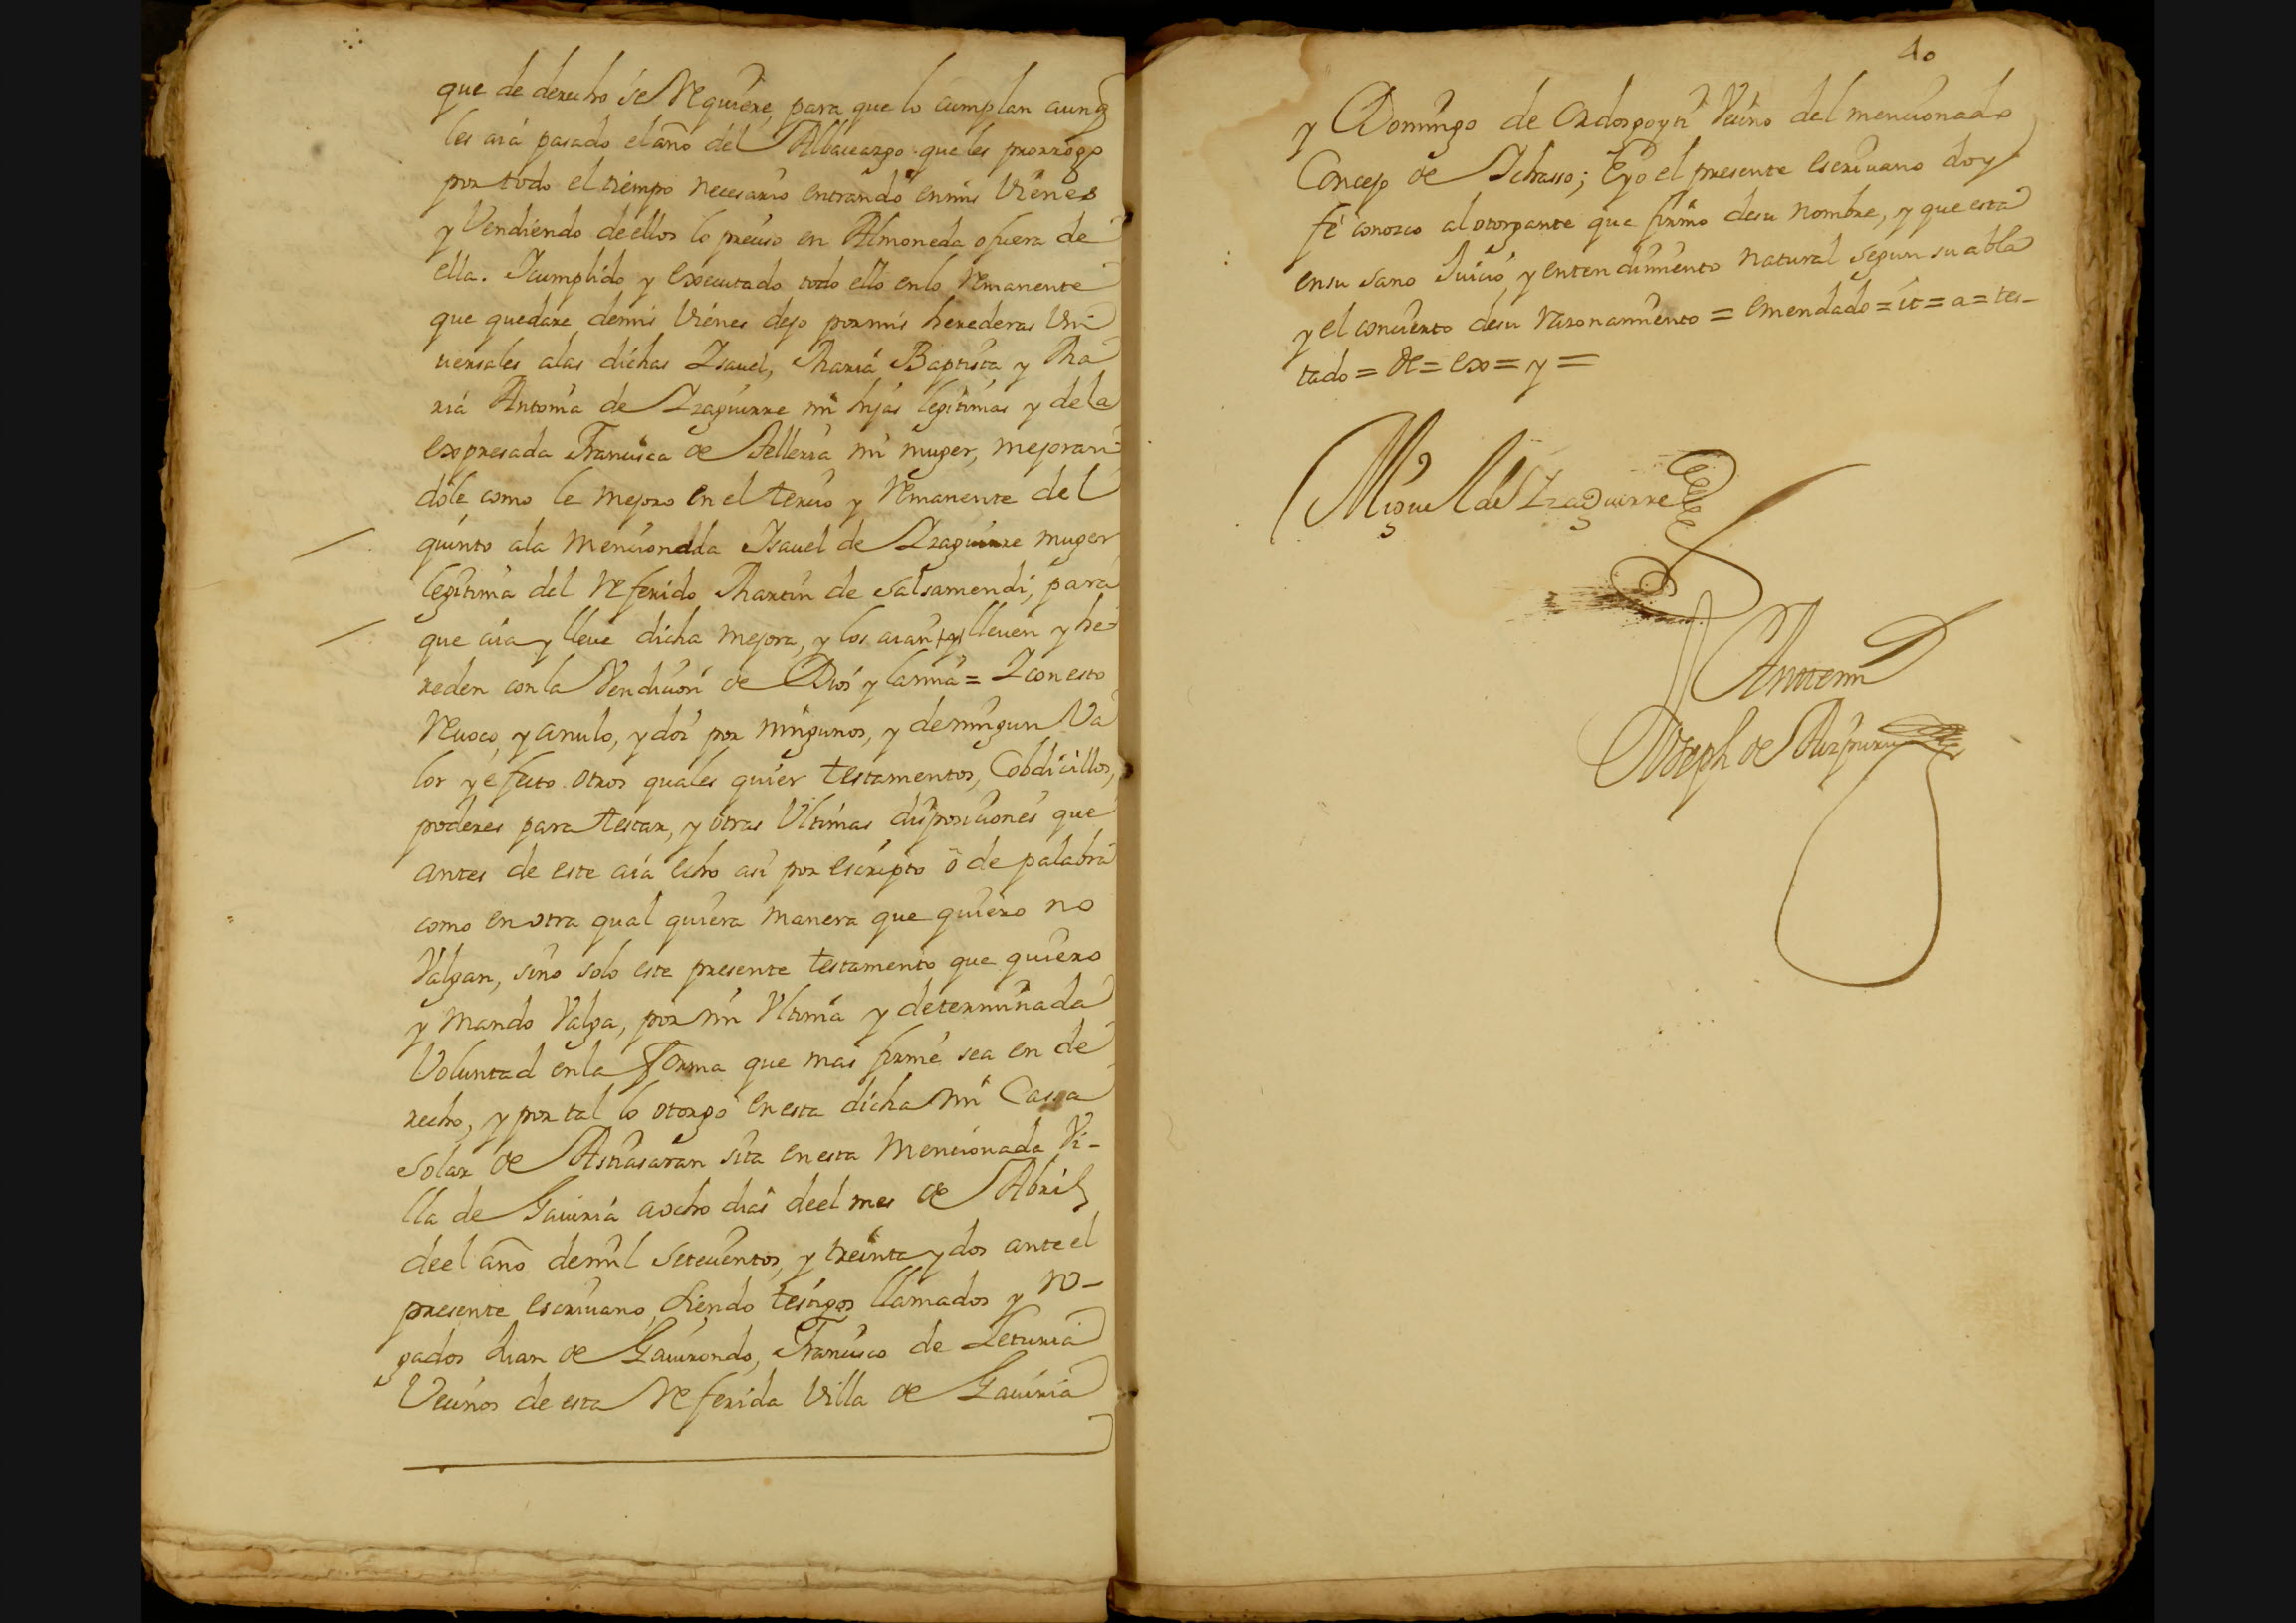 que de derecho se Requiere, para que lo cumplan aunq̃
les aia pasado el año del Albaceazgo que les prorrogo
por todo el tiempo necesario entrando en mis Vienes
y Vendiendo de ellos lo preciso en Almoneda o fuera de
ella. Icumplido y executado todo ello en lo Remanente
que quedare de mis Vienes dejo por mis herederas Vni
uersales a las dichas Isauel, Maria Baptista y Ma
ria Antonia de Izaguirre mi hijas legitimas y de la
expresada Francisca de Telleria mi muger, mejoran
dole como le mejoro en el tercio y Remanente del
quinto a la mencionada Isauel de Izaguirre muger
legitima del Referido Martin de Salsamendi, para
que aia y lleue dicha mejora, y los aian y lleuen y he
reden con la Vendicion de Dios y la mia = I con esto
Reuoco, y anulo, y doi por ningunos, y de ningun Va
lor y efecto otros quales quier testamentos, Cobdicillos,
poderes para testar, y otras Vltimas disposiciones que
antes de este aia echo asi por escripto o de palabra
como en otra qual quiera manera que quiero no
Valgan, sino solo este presente testamento que quiero
y mando Valga, por mi Vltima y determinada
Voluntad en la forma que mas firme sea en de
recho, y por tal lo otorgo en esta dicha mi Cassa
solar de Astiasaran sita en esta mencionada Vi-
lla de Gauiria a ocho dias de el mes de Abril
de el año de mil setecientos, y treinta y dos ante el
presente escriuano, siendo testigos llamados y ro-
gados Juan de Gauirondo, Francisco de Leturia
Vecinos de esta Referida Villa de Gauiria
40
y Domingo de Ordozgoyti Vecino del mencionado
Concejo de Ichasso; E yo el presente escriuano doy
fe conozco al otorgante que firmo de su nombre, y que esta
en su sano Juicio, y entendimiento natural segun su abla
y el concierto de su razonamiento = emendado = it = a = tes-
tado = de = ex = y =
Miguel de Izaguirre
Ante mi
Joseph de Aizpuru